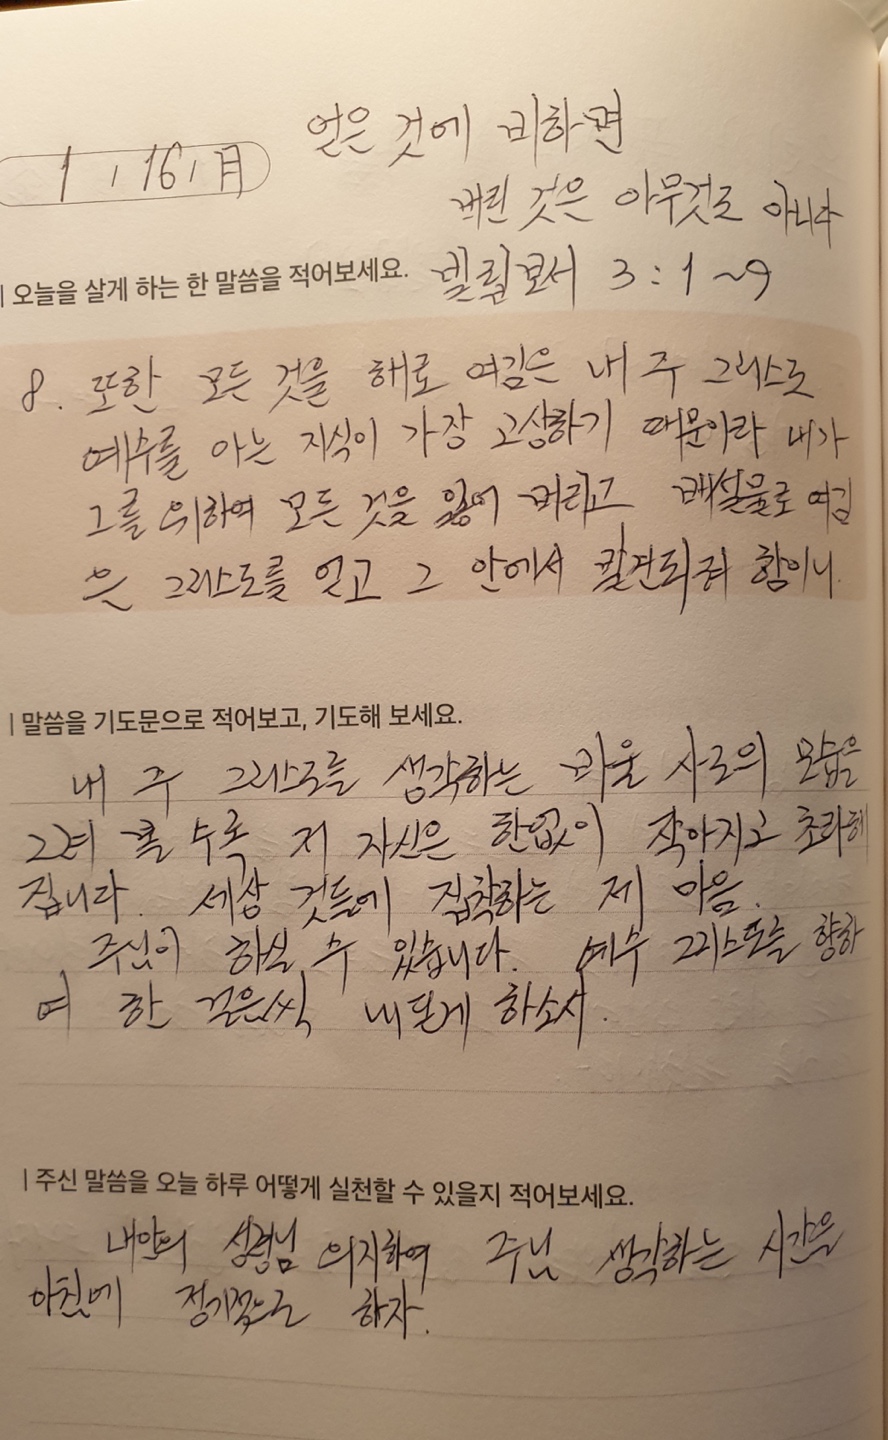 얻은 것에 비하면
1, 16, 月
버린 것은 아무것도 아니다
| 오늘을 살게 하는 한 말씀을 적어보세요.
빌립보서 3:1~9
8. 또한 모든 것을 해로 여김은 내 주 그리스도
예수를 아는 지식이 가장 고상하기 때문이라 내가
그를 위하여 모든 것을 잃어 버리고 배설물로 여김
은 그리스도를 얻고 그 안에서 발견되려 함이니.
| 말씀을 기도문으로 적어보고, 기도해 보세요.
내 주 그리스도를 생각하는 바울 사도의 모습을
그려 볼 수록 저 자신은 한없이 작아지고 초라해
집니다. 세상 것들에 집착하는 제 마음.
주님이 하실 수 있습니다. 예수 그리스도를 향하
여 한 걸음씩 내딛게 하소서.
| 주신 말씀을 오늘 하루 어떻게 실천할 수 있을지 적어보세요.
내안의 성령님 의지하여 주님 생각하는 시간을
아침에 정기적으로 하자.